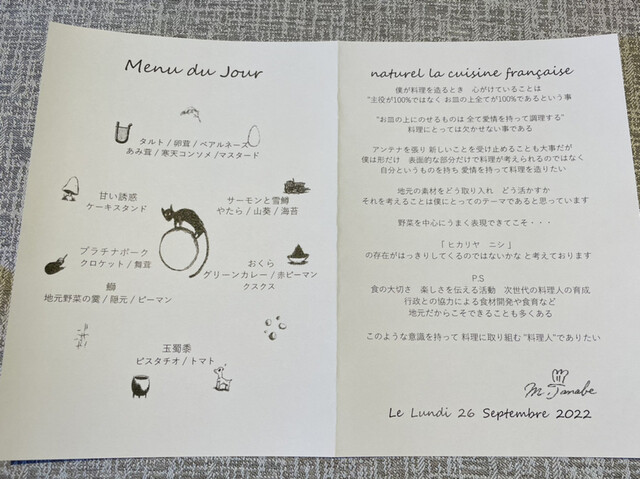 Menu du Jour
タルト / 卵茸 / ベアルネーズ
あみ茸 / 寒天コンソメ /マスタード
甘い誘惑
ケーキスタンド
サーモンと雪鱒
やたら / 山葵 / 海苔
プラチナポーク
クロケット / 舞茸
おくら
グリーンカレー / 赤ピーマン
クスクス
鰤
地元野菜の霙 / 隠元 / ピーマン
玉蜀黍
ピスタチオ / トマト
naturel la cuisine française
僕が料理を造るとき 心がけていることは
"主役が100%ではなく お皿の上全てが100%であるという事
"お皿の上にのせるものは 全て愛情を持って調理する"
料理にとっては欠かせない事である
アンテナを張り 新しいことを受け止めることも大事だが
僕は形だけ 表面的な部分だけで料理が考えられるのではなく
自分というものを持ち 愛情を持って料理を造りたい
地元の素材をどう取り入れ どう活かすか
それを考えることは僕にとってのテーマであると思っています
野菜を中心にうまく表現できてこそ・・・
「 ヒカリヤ ニシ 」
の存在がはっきりしてくるのではないかな と考えております
P.S
食の大切さ 楽しさを伝える活動 次世代の料理人の育成
行政との協力による食材開発や食育など
地元だからこそできることも多くある
このような意識を持って 料理に取り組む "料理人"でありたい
M. Tanabe
Le Lundi 26 Septembre 2022